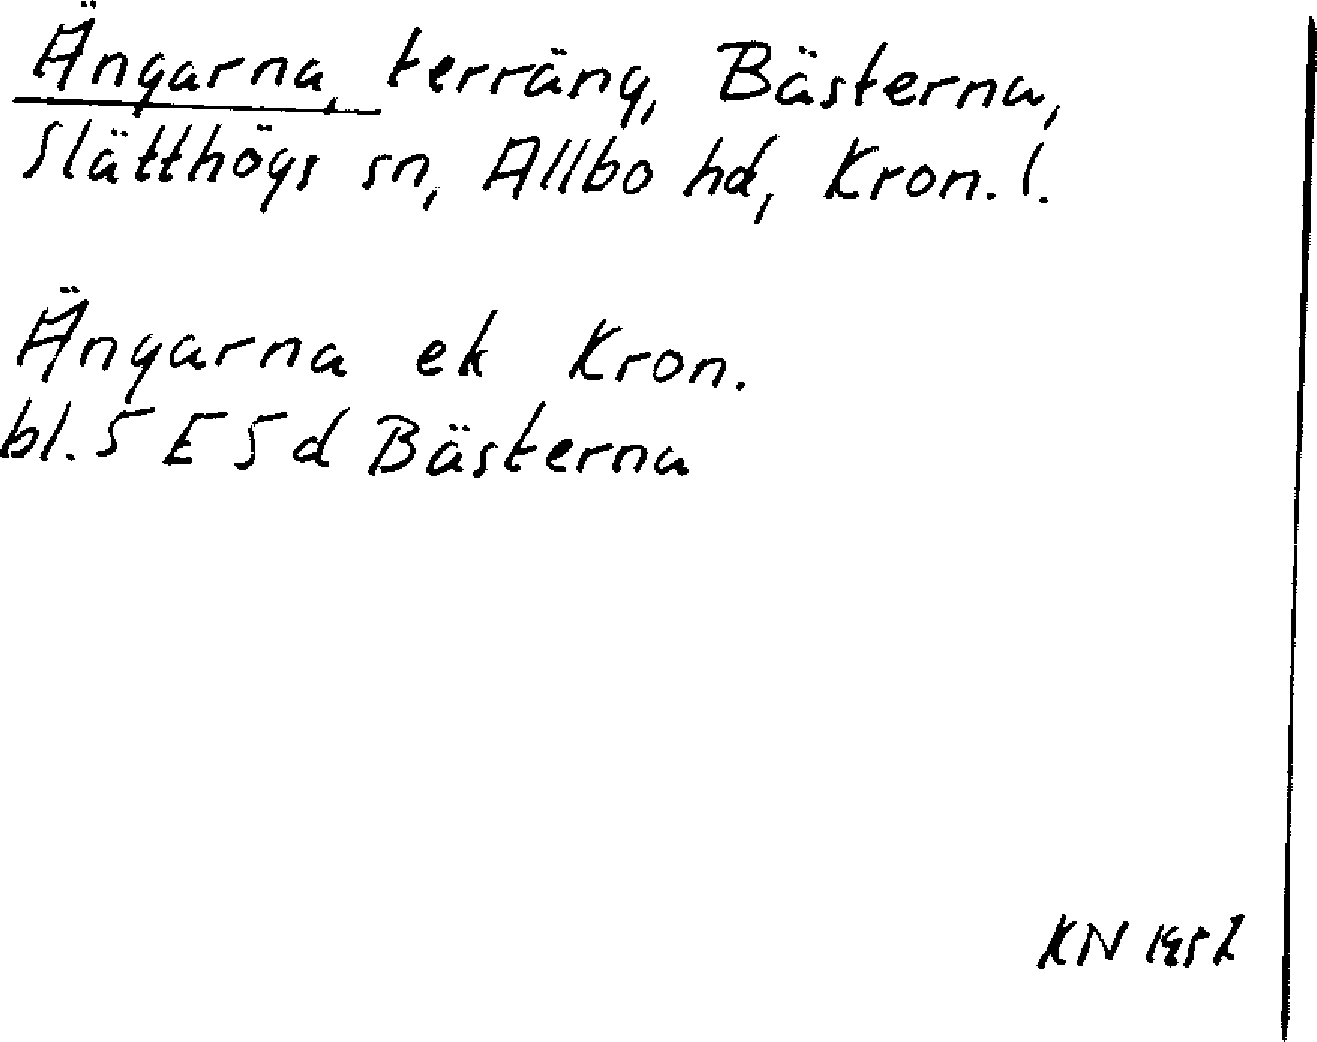 Ängarna, terräng, Bästerna,
Slätthögs sn, Allbo hd, Kron. l.
Ängarna ek Kron.
bl. 5 E 5 d Bästerna
KN 1952